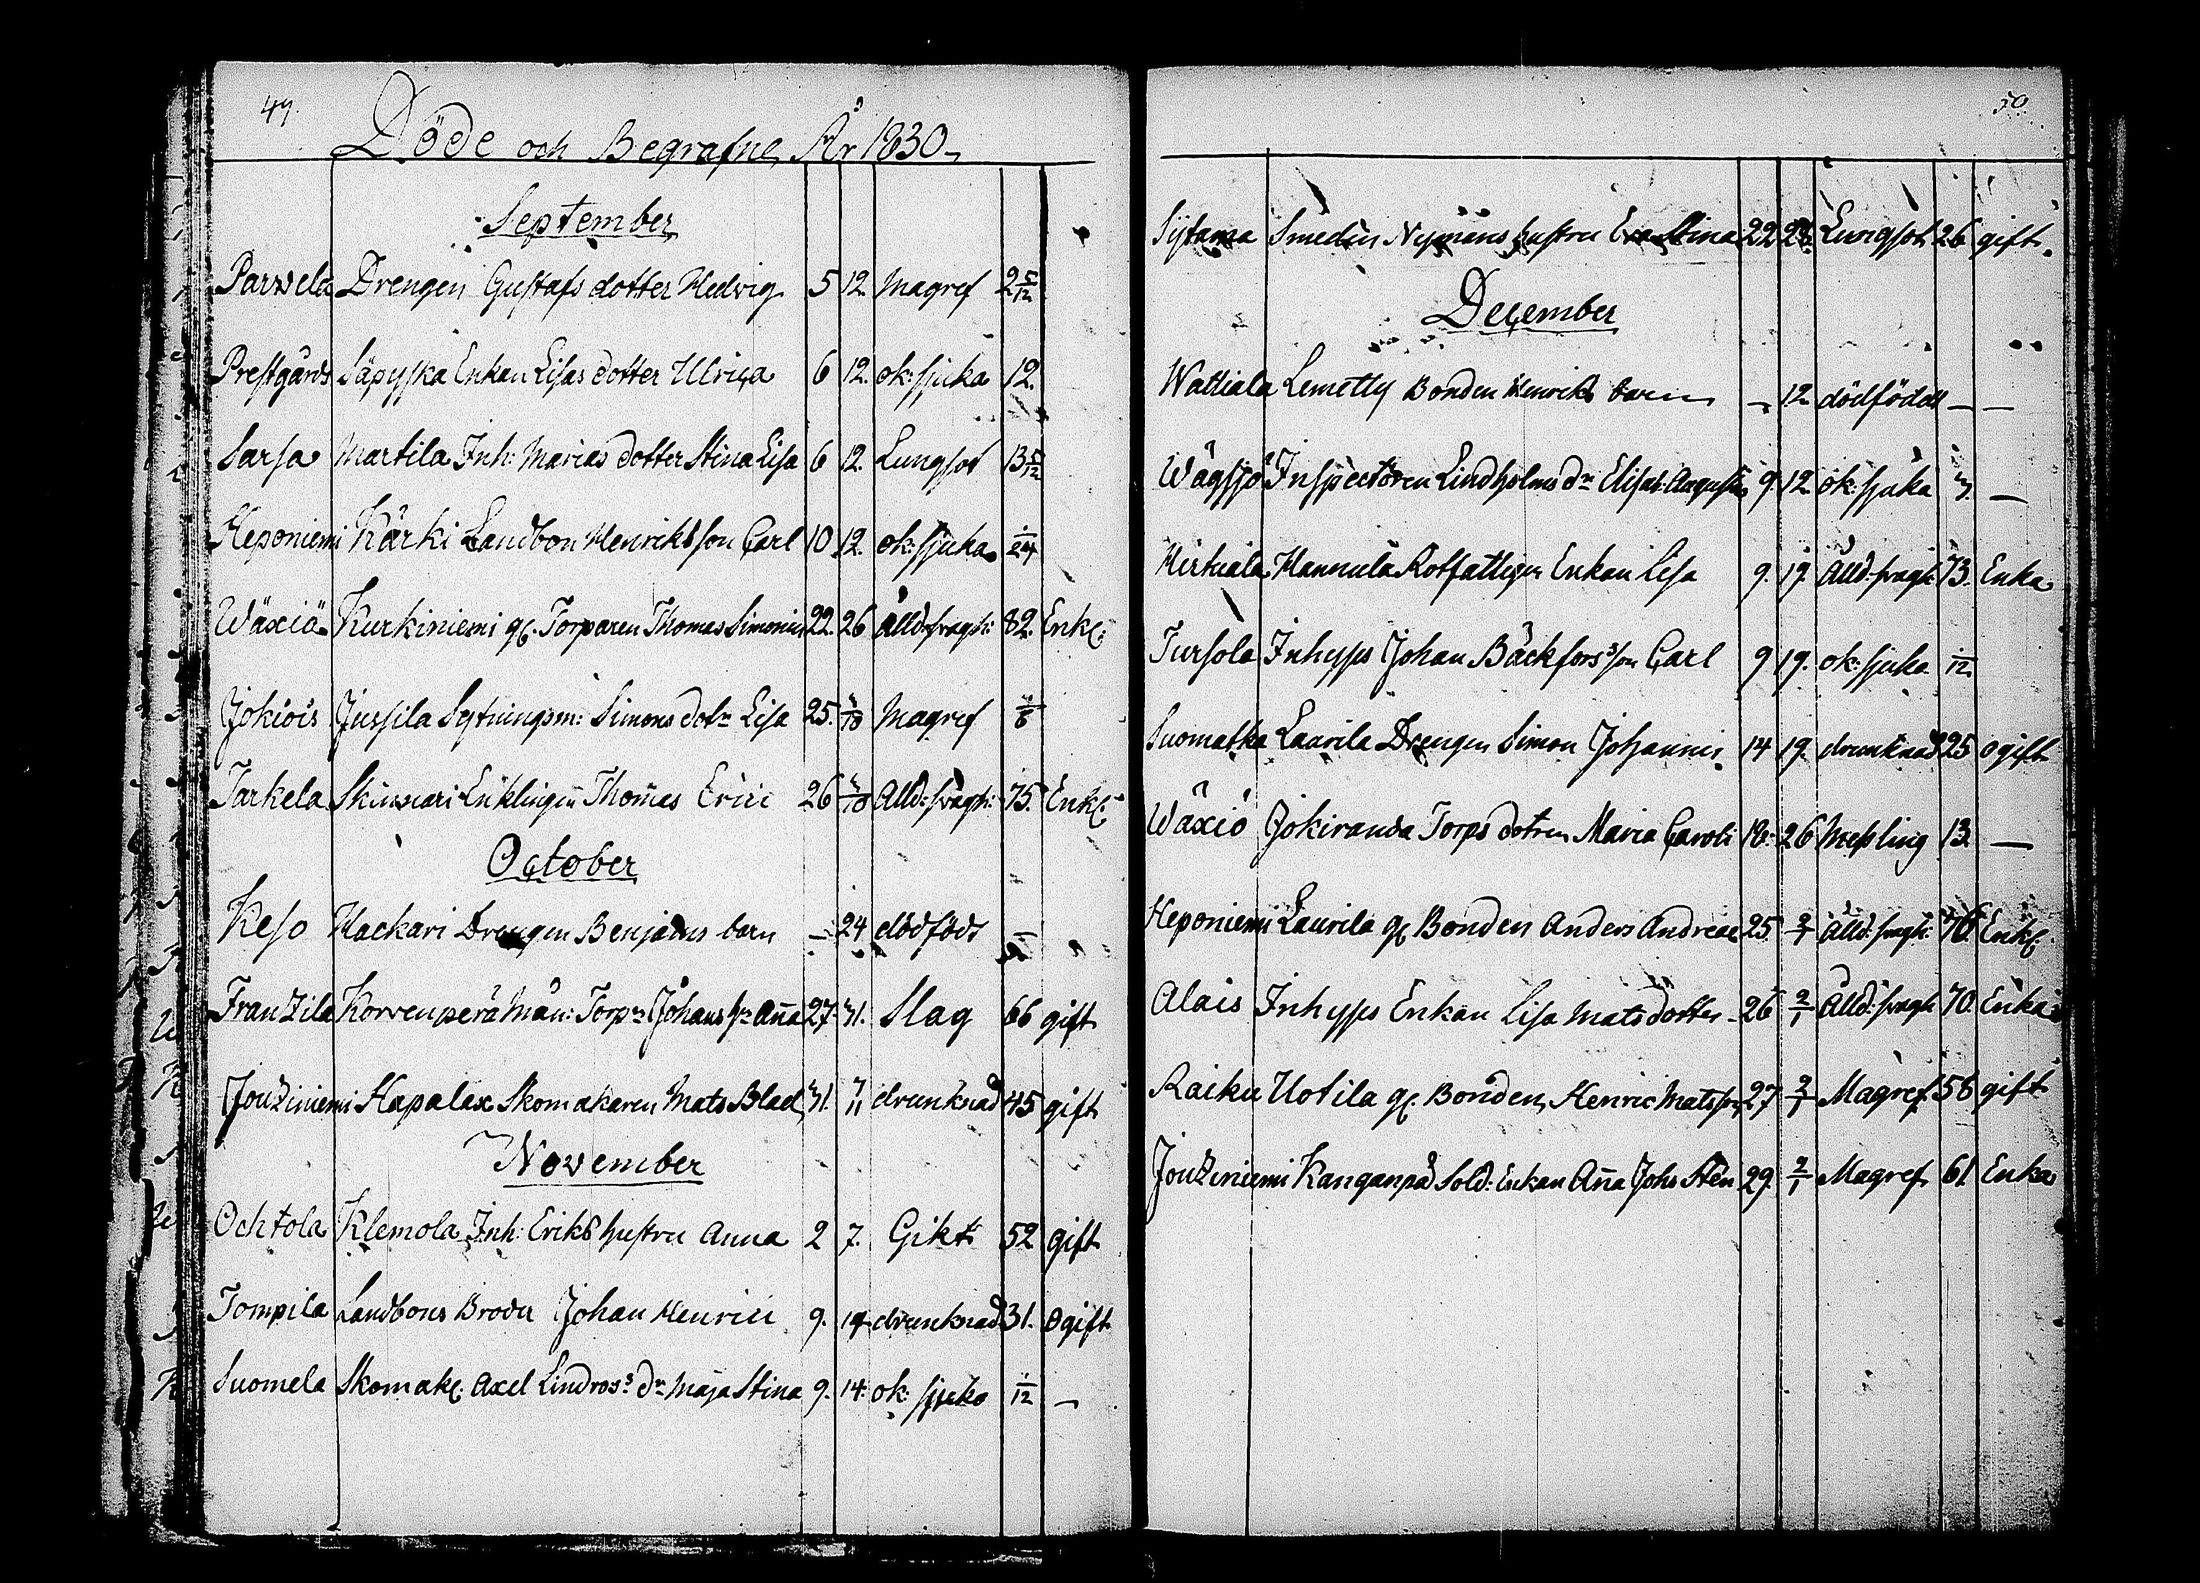 49.
Döde och Begrafne År 1830
September
Parvela Drengen Gustafs dotter Hedvig 5 12 Magref 2 5/12
Prestgårds Säpyska Enkan Lisas dotter Ulrica 6 12. ok: sjuka 12.
Sarsa Martila Inh: Marias dotter Stina Lisa 6 12. Lungsot 13 5/12
Heponiemi Kärki Landbon Henriks son Carl 10 12. ok: sjuka 1/24
Wäxiö Kurkiniemi gl. Torparen Thomas Simonis 22. 26 Ålld: svagh: 82. Enkl:
Jokiois Jussila Sytningsm: Simons dotr Lisa 25. 3/10 Magref
Tarkela Skinnari Enklingen Thomas Erici 26 3/10 Ålld: svagh: 75. Enkl:
October
Keso Hackari Drengen Benjamins barn – 24 dödföds –
Franzila Korvenperä Mån: Torpn Johans hu Anna 27. 31. Slag 66 gift
Jouziniemi Hapalax Skomakaren Mats Blad 31. 7/11 drunknad 45 gift
November
Ochtola Klemola Inh: Eriks hustru Anna 2 7. Gikt 52 gift
Tompila Landbons Broder Johan Henrici 9. 14 drunknad 31. Ogift
Suomela Skomak: Axel Lindros's dr Maja Stina 9. 14. ok: sjuka 1/12 –
50.
Sytama Smeden Nymans hustru Eva Stina 22 28. Lungsot 26 gift.
December
Wattiala Lemetty Bonden Henriks barn – 12 dödfödd – –
Wägsjö Inspectoren Lindholms dr Elisab. Augusta 9. 12 ok: sjuka 3. –
Hirtuala Hannula Rotfattigen Enkan Lisa 9. 19. Ålld: svagh: 73. Enka
Tursola Inhyses Johan Bäckfors's son Carl 9 19. ok: sjuka 1/12
Suomatka Laurila Drengen Simon Johannis 14 19. drunknad 25 Ogift
Wäxiö Jokiranda Torps dotren Maria Caroli 18. 26 Messling 13. –
Heponiemi Laurila gl Bonden Anders Andreae 25. 2/1 Ålld: svagh: 76. Enkl:
Alais Inhyses Enkan Lisa Mats dotter 26 2/1 Ålld: svagh 70. Enka
Raiku Uotila gl. Bonden Henric Matsson 27 2/1 Magref 58 gift
Jouziniemi Kanganpä Sold: Enkan Anna Johs Stén 29. 2/1 Magref 61 Enka